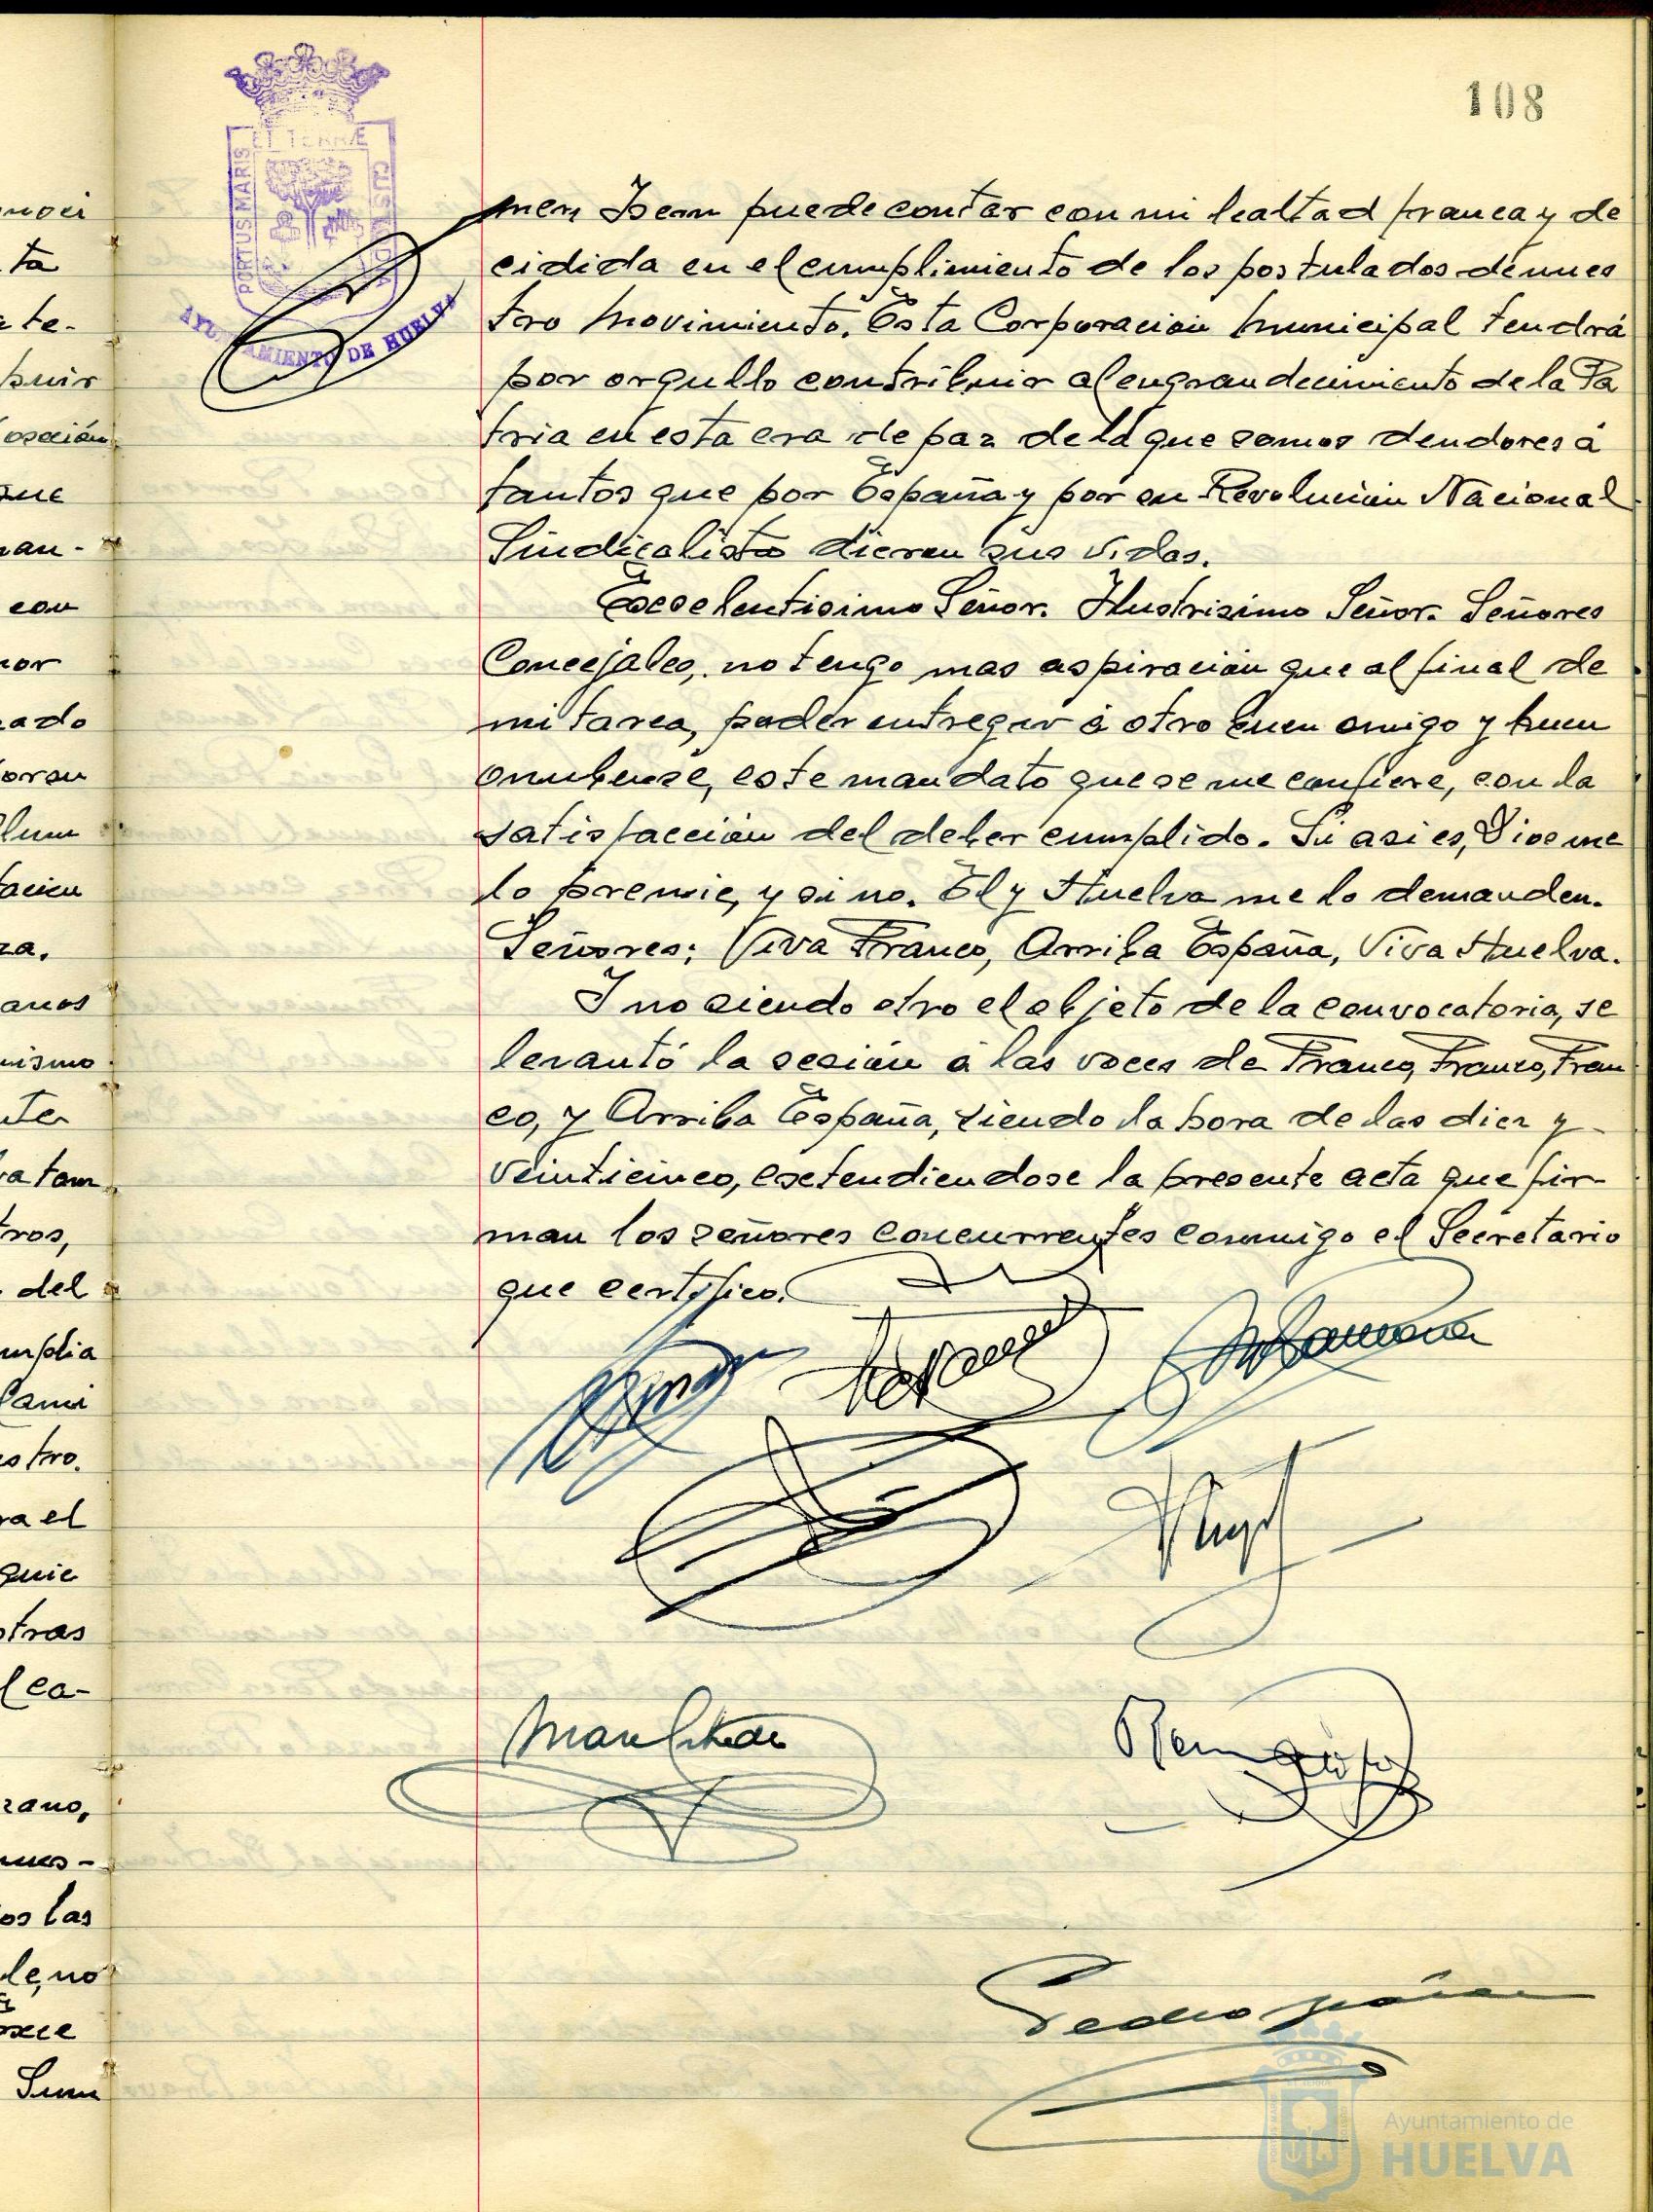 108
PORTUS MARIS
ET TERRÆ
CUSTODIA
AYUNTAMIENTO DE HUELVA
puede contar con mi lealtad franca y de
cidida en el cumplimiento de los postulados de nues
tro Movimiento. Esta Corporación Municipal tendrá
por orgullo contribuir al engrandecimiento de la Pa
tria en esta era de paz de la que somos deudores á
tantos que por España y por su Revolución Nacional
Sindicalista dieron sus vidas.
Excelentisimo Señor. Ilustrisimo Señor. Señores
Concejales, no tengo mas aspiración que al final de
mi tarea, poder entregar á otro buen amigo y buen
onubense, este mandato que se me confiere, con la
satisfacción del deber cumplido. Si asi es, Dios me
lo premie, y si no. El y Huelva me lo demanden.
Señores; Viva Franco, Arriba España, Viva Huelva.
Y no siendo otro el objeto de la convocatoria, se
levantó la sesión á las voces de Franco, Franco, Fran
co, y Arriba España, siendo la hora de las diez y
veinticinco, extendiendose la presente acta que fir-
man los señores concurrentes conmigo el Secretario
que certifico.
Pedro
Ayuntamiento de
HUELVA
ta
te-
que
con
nor
ado
anos
mismo
tros,
del
ra el
otras
l ca-
os las